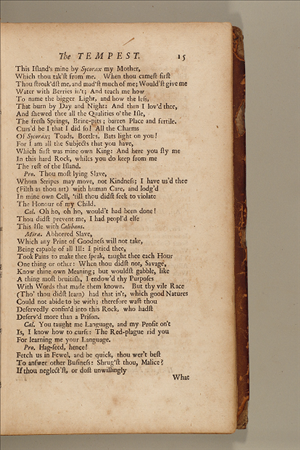 The TEMPEST. 15
This Island's mine by Sycorax my Mother,
Which thou tak'st from me. When thou camest first
Thou stroak'dst me, and mad'st much of me; Would'st give me
Water with Berries in't; And teach me how
To name the bigger Light, and how the less,
That burn by Day and Night: And then I lov'd thee,
And shewed thee all the Qualities o'the Isle,
The fresh Springs, Brine-pits; barren Place and fertile.
Curs'd be I that I did so! All the Charms
Of Sycorax; Toads, Beetles, Bats light on you!
For I am all the Subjects that you have,
Which first was mine own King: And here you sty me
In this hard Rock, whiles you do keep from me
The rest of the Island.
Pro. Thou most lying Slave,
Whom Stripes may move, not Kindness; I have us'd thee
(Filth as thou art) with human Care, and lodg'd
In mine own Cell, 'till thou didst seek to violate
The Honour of my Child.
Cal. Oh ho, oh ho, would't had been done!
Thou didst prevent me, I had peopl'd else
This Isle with Calibans.
Mira. Abhorred Slave,
Which any Print of Goodness will not take,
Being capable of all Ill: I pitied thee,
Took Pains to make thee speak, taught thee each Hour
One thing or other: When thou didst not, Savage,
Know thine own Meaning; but wouldst gabble, like
A thing most bruitish, I endow'd thy Purposes
With Words that made them known. But thy vile Race
(Tho' thou didst learn) had that in't, which good Natures
Could not abide to be with; therefore wast thou
Deservedly confin'd into this Rock, who hadst
Deserv'd more than a Prison.
Cal. You taught me Language, and my Profit on't
Is, I know how to curse: The Red-plague rid you
For learning me your Language.
Pro. Hag-seed, hence!
Fetch us in Fewel, and be quick, thou wer't best
To answer other Business: Shrug'st thou, Malice?
If thou neglect'st, or dost unwillingly
What